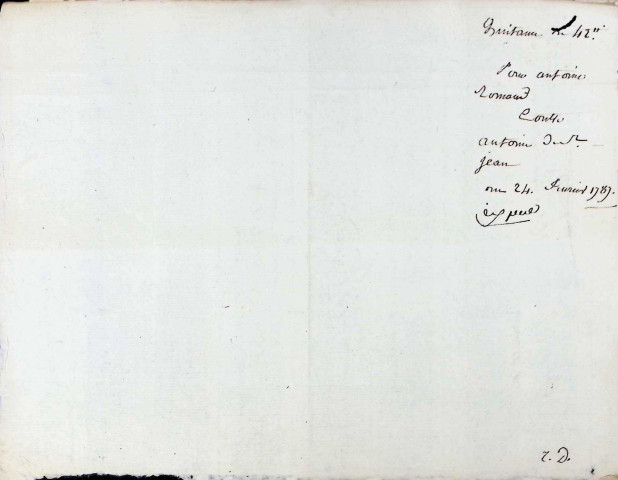 Quittance de 42"
Pour antoine
Romand
Contre
antoine de St
jean
24. fevrier 1787.
expedié